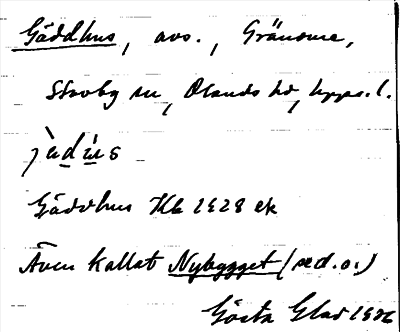 Gäddhus, avs., Gränome,
Stavby sn, Olands hd, Upps. l.
jädùs
Gäddhus Hk 1928 ek
Även kallat Nybygget (se d.o.)
Gösta Glad